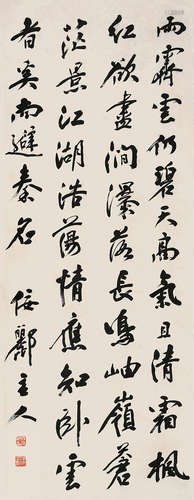 雨霽雲仍碧天高氣且清霜楓
紅欲盡澗瀑落長鳴岫嶺蒼
茫景江湖浩蕩情應知臥雲
者避秦名 主人